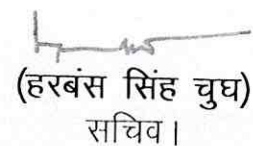 (हरबंस सिंह चुघ)
सचिव।